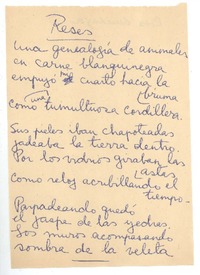 Reses
una genealogía de animales
en carne blanquinegra
empujó mi cuarto hacia la
bruma
como una tumultuosa cordillera.
Sus pieles iban chapoteadas
jadeaba la tierra dentro.
Por los vidrios giraban las
astas
como reloj acribillando el
tiempo.
Parpadeando quedó
el jaspe de las yedras.
Los muros acompasando
sombra de la